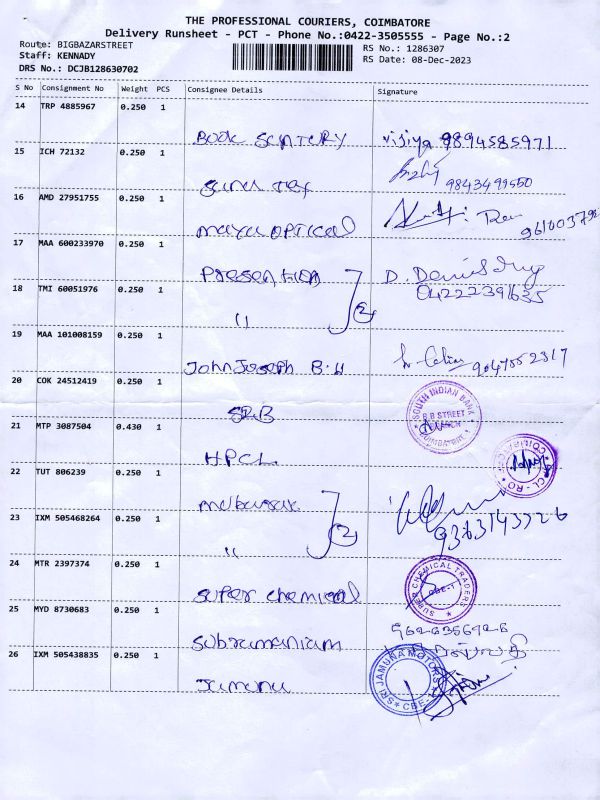 THE PROFESSIONAL COURIERS, COIMBATORE
Delivery Runsheet - PCT - Phone No.:0422-3505555 - Page No.:2
Route: BIGBAZARSTREET
RS No.: 1286307
Staff: KENNADY
RS Date: 08-Dec-2023
DRS No.: DCJB128630702
S No Consignment No Weight PCS Consignee Details Signature
14 TRP 4885967 0.250 1
Book
9894585971
15 ICH 72132 0.250 1
9843499550
16 AMD 27951755 0.250 1
maya OPTICAL
17 MAA 600233970 0.250 1
18 TMI 60051976 0.250 1
04222391635
" 2
19 MAA 101008159 0.250 1
John Joseph B.H
20 COK 24512419 0.250 1
SOUTH INDIAN BANK
B.B STREET
BRANCH
COIMBATORE
21 MTP 3087504 0.430 1
HPCL
22 TUT 806239 0.250 1
23 IXM 505468264 0.250 1
" 2
24 MTR 2397374 0.250 1
super chemical
SUPER CHEMICAL TRADERS
CBE-1
25 MYD 8730683 0.250 1
subramaniam
26 IXM 505438835 0.250 1
Jamuna
SRI JAMUNA MOTORS
CBE